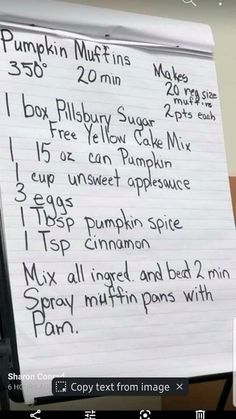 Pumpkin Muffins
350° 20 min
Makes
20 reg size
muffins
2pts each
1 box Pillsbury Sugar
Free Yellow Cake Mix
1 15 oz can Pumpkin
1 cup unsweet applesauce
3 eggs
1 Tbsp pumpkin spice
1 Tsp cinnamon
Mix all ingred. and beat 2 min
Spray muffin pans with
Pam.
Sharon
6 H
Copy text from image ×